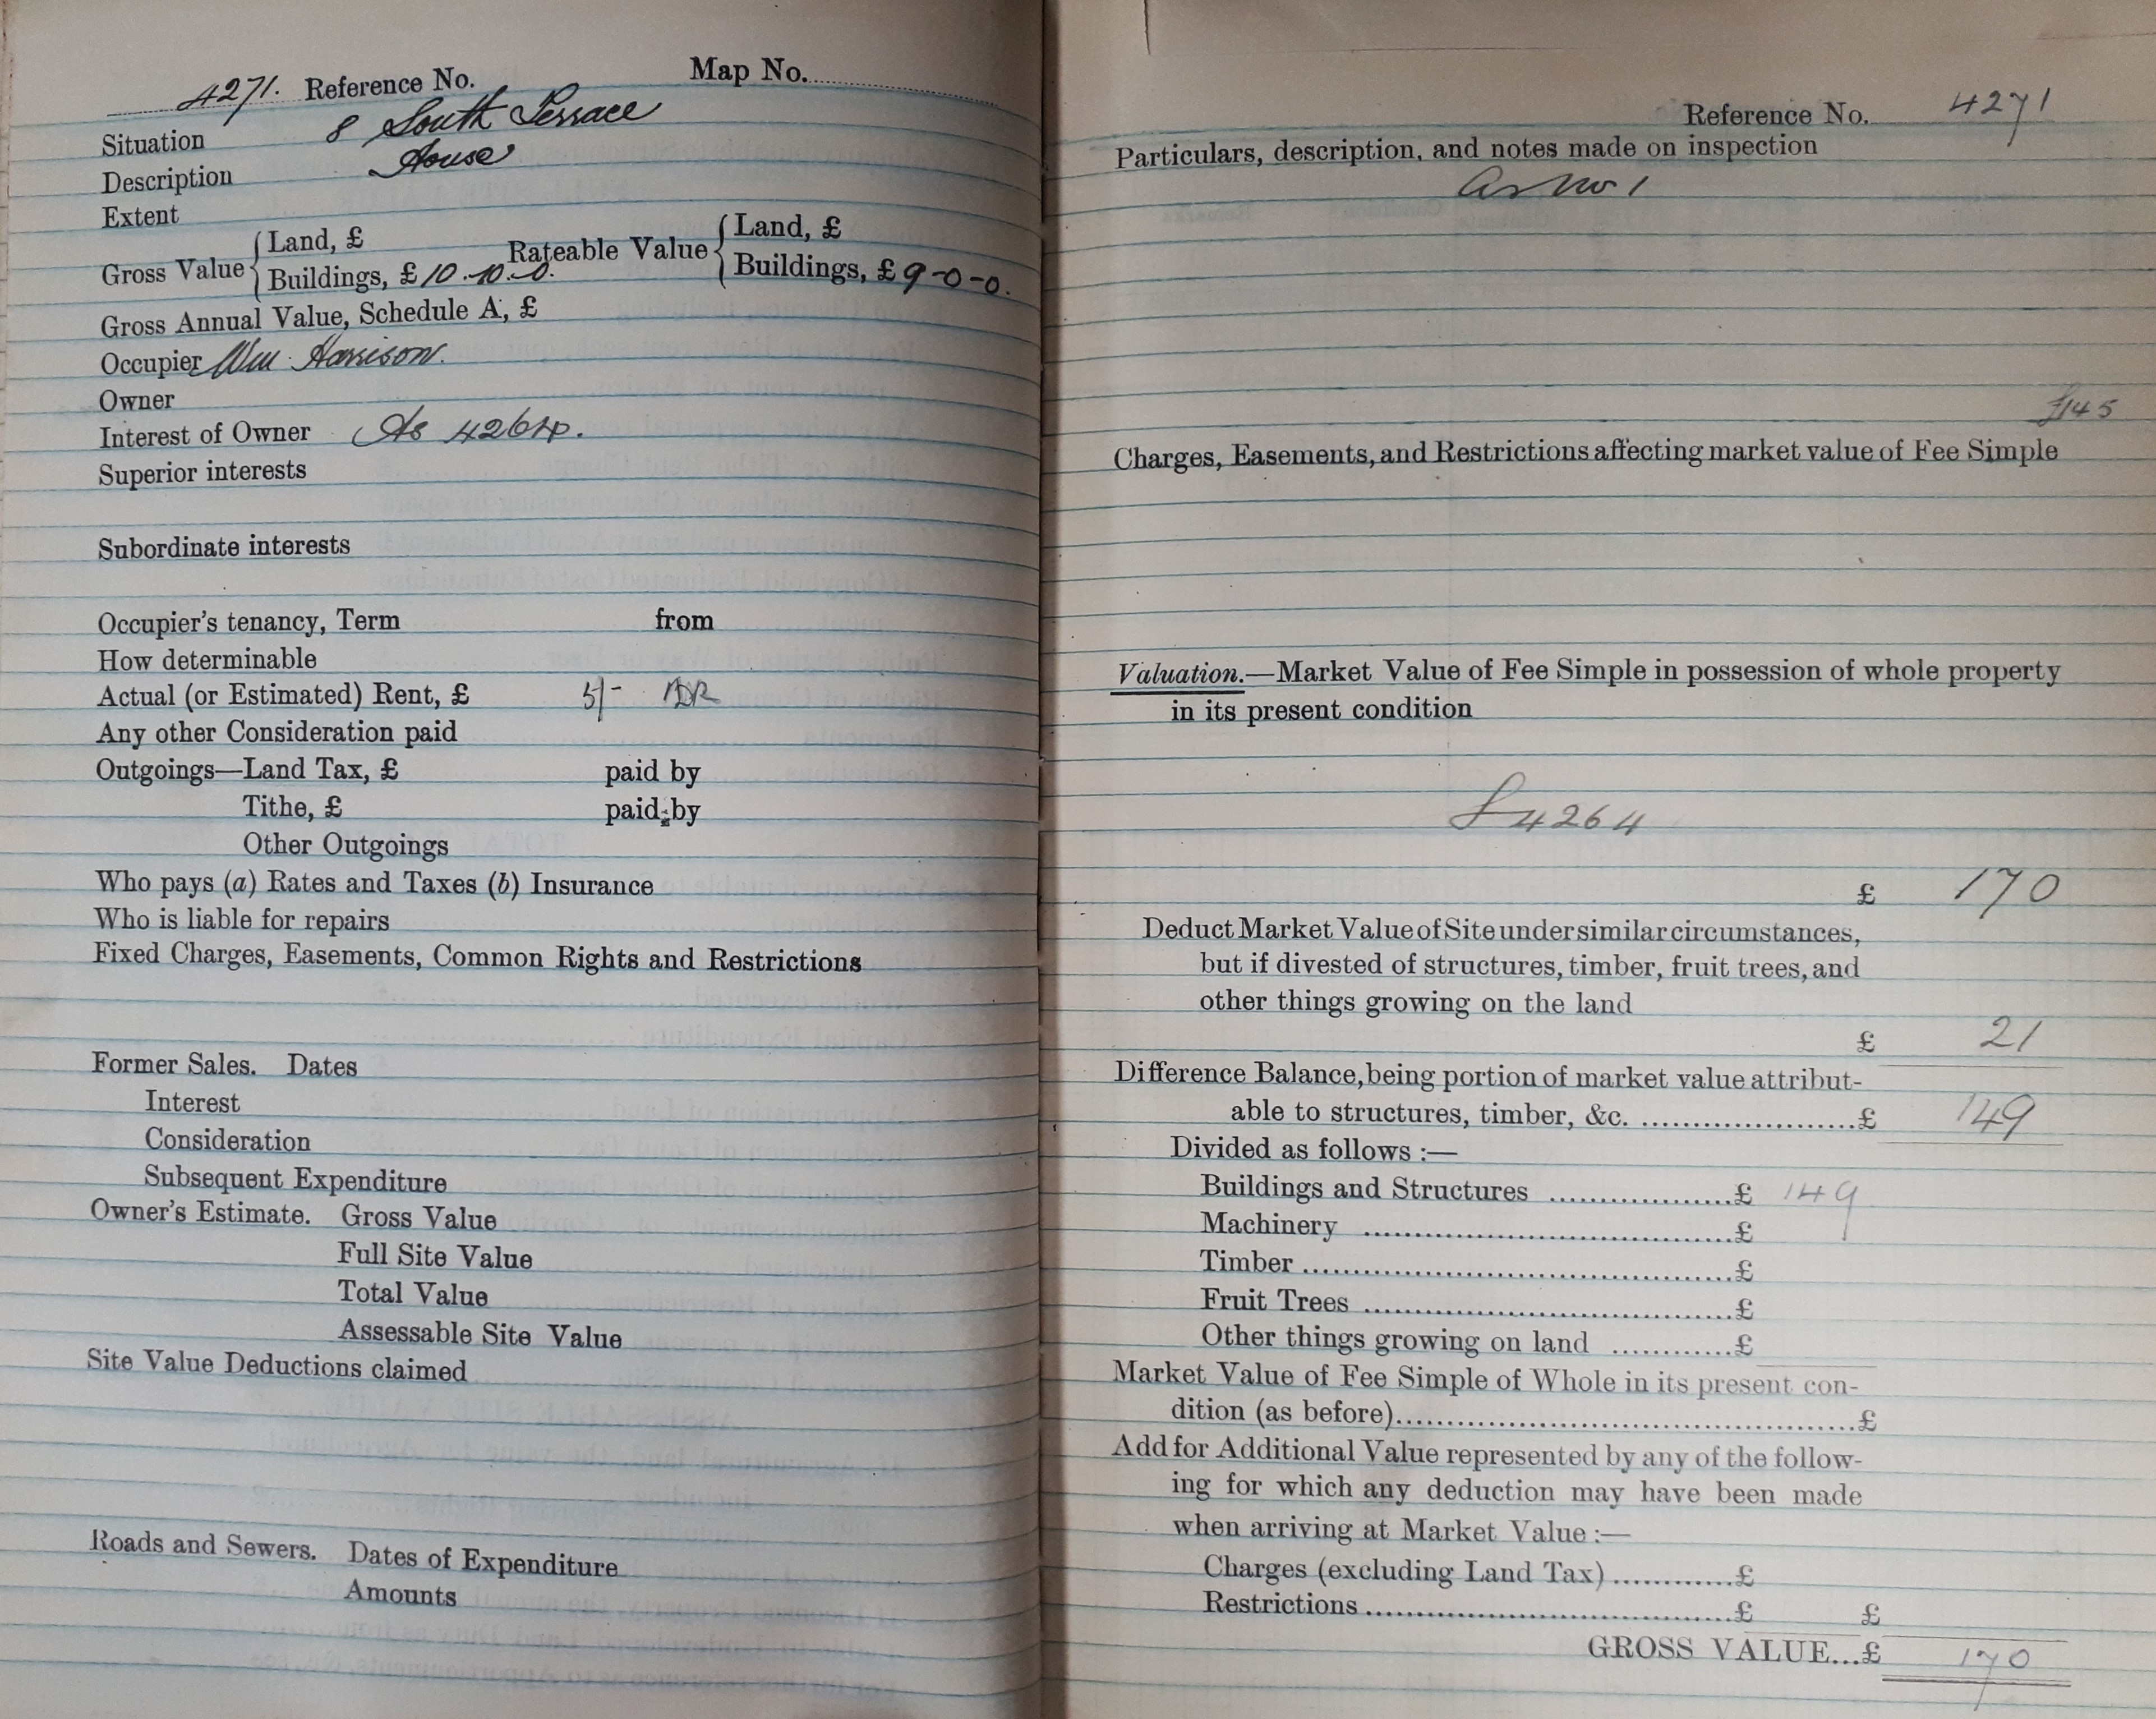 4271. Reference No. Map No.
Situation 8 South Terrace
Description House
Extent
Gross Value { Land, £ Rateable Value { Land, £
Buildings, £ 10.10.0. Buildings, £ 9-0-0.
Gross Annual Value, Schedule A, £
Occupier Wm Harrison.
Owner
Interest of Owner As 4264.
Superior interests
Subordinate interests
Occupier's tenancy, Term from
How determinable
Actual (or Estimated) Rent, £ 5/-
Any other Consideration paid
Outgoings—Land Tax, £ paid by
Tithe, £ paid by
Other Outgoings
Who pays (a) Rates and Taxes (b) Insurance
Who is liable for repairs
Fixed Charges, Easements, Common Rights and Restrictions
Former Sales. Dates
Interest
Consideration
Subsequent Expenditure
Owner's Estimate. Gross Value
Full Site Value
Total Value
Assessable Site Value
Site Value Deductions claimed
Roads and Sewers. Dates of Expenditure
Amounts
Reference No. 4271
Particulars, description, and notes made on inspection
as No 1
£145
Charges, Easements, and Restrictions affecting market value of Fee Simple
Valuation.—Market Value of Fee Simple in possession of whole property
in its present condition
4264
£ 170
Deduct Market Value of Site under similar circumstances,
but if divested of structures, timber, fruit trees, and
other things growing on the land
£ 21
Difference Balance, being portion of market value attribut-
able to structures, timber, &c. ......................£ 149
Divided as follows :—
Buildings and Structures ..................£ 149
Machinery ......................................£
Timber ............................................£
Fruit Trees .....................................£
Other things growing on land ............£
Market Value of Fee Simple of Whole in its present con-
dition (as before)..............................................£
Add for Additional Value represented by any of the follow-
ing for which any deduction may have been made
when arriving at Market Value :—
Charges (excluding Land Tax) ............£
Restrictions .....................................£ £
GROSS VALUE...£ 170